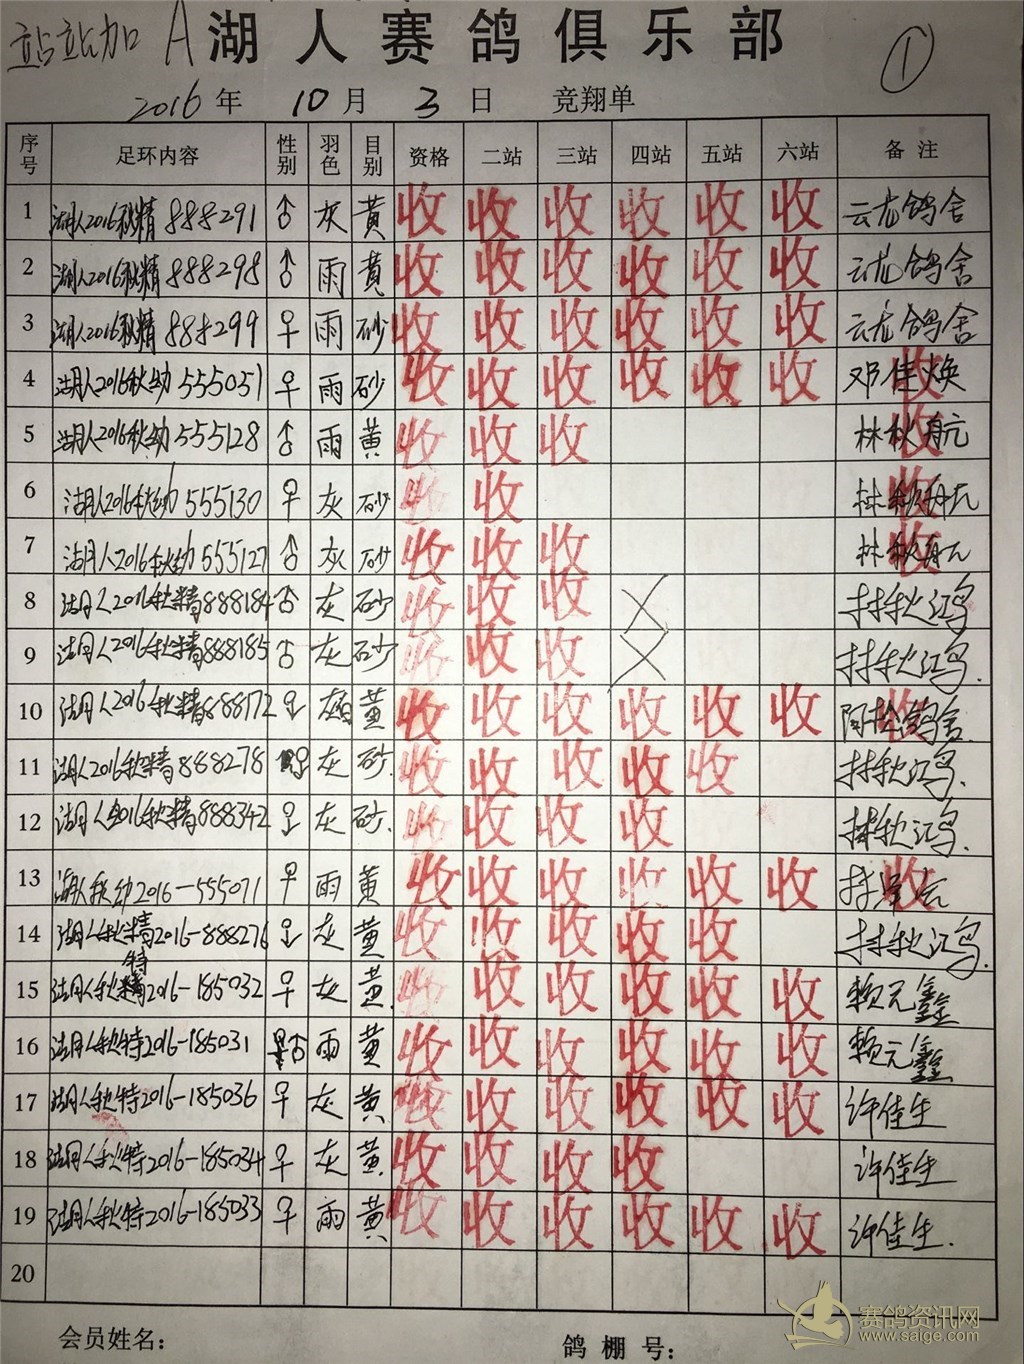 站站加 A 湖人赛鸽俱乐部 ①
2016年 10月 3日 竞翔单
序号 足环内容 性别 羽色 目别 资格 二站 三站 四站 五站 六站 备注
1 湖人2016秋精888291 ♂ 灰 黄 收 收 收 收 收 收 云龙鸽舍
2 湖人2016秋精888298 ♂ 雨 黄 收 收 收 收 收 收 云龙鸽舍
3 湖人2016秋精888299 ♀ 雨 砂 收 收 收 收 收 收 云龙鸽舍
4 湖人2016秋幼555051 ♀ 雨 砂 收 收 收 收 收 收 邓佳焕 收
5 湖人2016秋幼555128 ♂ 雨 黄 收 收 收 林秋舟元 收
6 湖人2016秋幼555130 ♀ 灰 砂 收 收 林秋舟元 收
7 湖人2016秋幼555127 ♂ 灰 砂 收 收 收 林秋舟元 收
8 湖人2016秋精888184 ♂ 灰 砂 收 收 收 X 林秋鸿
9 湖人2016秋精888185 ♂ 灰 砂 收 收 收 X 林秋鸿.
10 湖人2016秋精888172 ♀ 黄 收 收 收 收 收 收 鸽舍 收
11 湖人2016秋精888278 ♀ 灰 砂. 收 收 收 收 收 林秋鸿.
12 湖人2016秋精888342 ♀ 灰 砂. 收 收 收 收 林秋鸿.
13 湖人秋幼2016-555071 ♀ 雨 黄 收 收 收 收 收 收 收
14 湖人秋精2016-888276 ♀ 灰 黄 收 收 收 收 收 林秋鸿.
15 湖人秋特2016-185032 ♀ 灰 黄. 收 收 收 收 收 收 赖元鑫
16 湖人秋特2016-185031 ♂ 雨 黄 收 收 收 收 收 收 赖元鑫
17 湖人秋特2016-185036 ♀ 灰 黄 收 收 收 收 收 收 许佳生
18 湖人秋特2016-185034 ♀ 灰 黄. 收 收 收 收 许佳生
19 湖人秋特2016-185033 ♀ 雨 黄 收 收 收 收 收 收 许佳生.
20
会员姓名: 鸽棚号:
赛鸽资讯网
www.saige.com